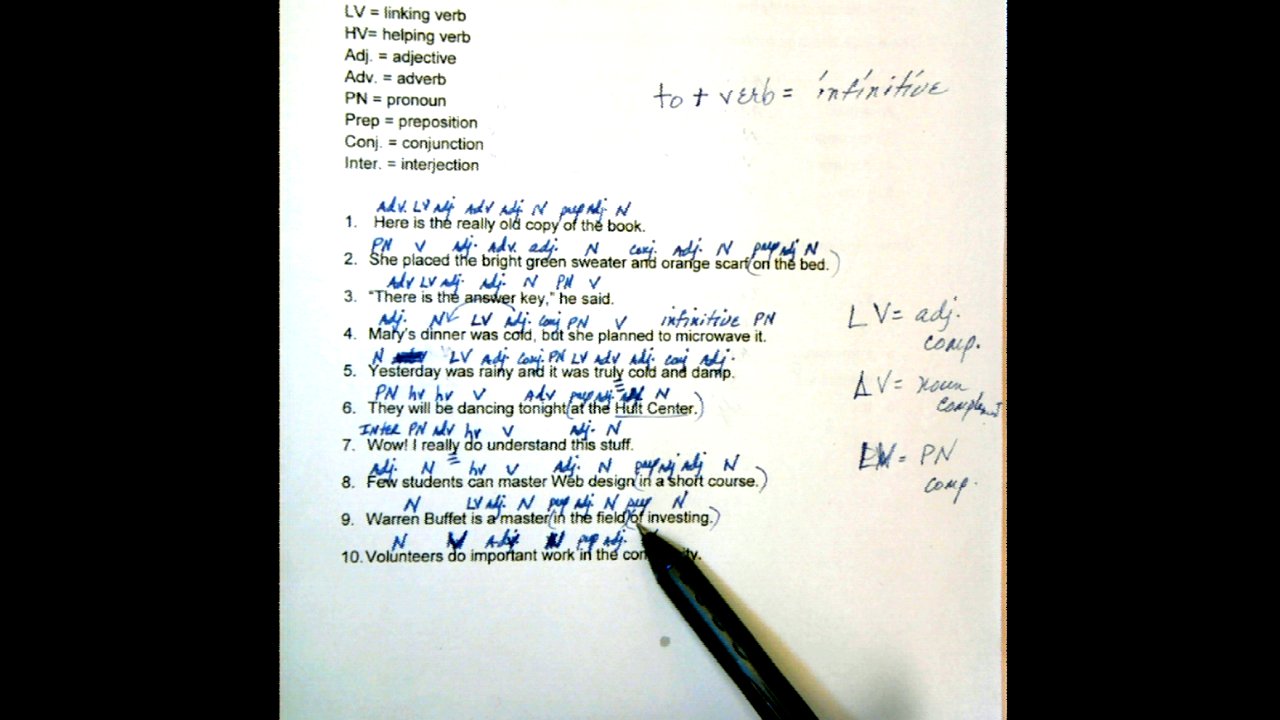 LV = linking verb
HV= helping verb
Adj. = adjective
Adv. = adverb
PN = pronoun
Prep = preposition
Conj. = conjunction
Inter. = interjection
to + verb = infinitive
Adv. LV Adj Adv Adj N prep Adj N
1. Here is the really old copy of the book.
PN V Adj. Adv. adj. N conj. Adj. N prep Adj N
2. She placed the bright green sweater and orange scarf (on the bed.)
Adv LV Adj. Adj. N PN V
3. "There is the answer key," he said.
Adj. N LV Adj. conj PN V infinitive PN
4. Mary's dinner was cold, but she planned to microwave it.
N LV Adj Conj. PN LV Adv Adj. conj Adj.
5. Yesterday was rainy and it was truly cold and damp.
PN hv hv V Adv prep Adj. N
6. They will be dancing tonight (at the Hult Center.)
INTER PN Adv hv V Adj. N
7. Wow! I really do understand this stuff.
Adj. N hv V Adj. N prep Adj Adj N
8. Few students can master Web design (in a short course.)
N LV Adj. N prep Adj N prep N
9. Warren Buffet is a master (in the field) (of investing.)
N V Adj N prep Adj.
10. Volunteers do important work in the
LV = adj.
comp.
LV = noun
complement
LV = PN
comp.